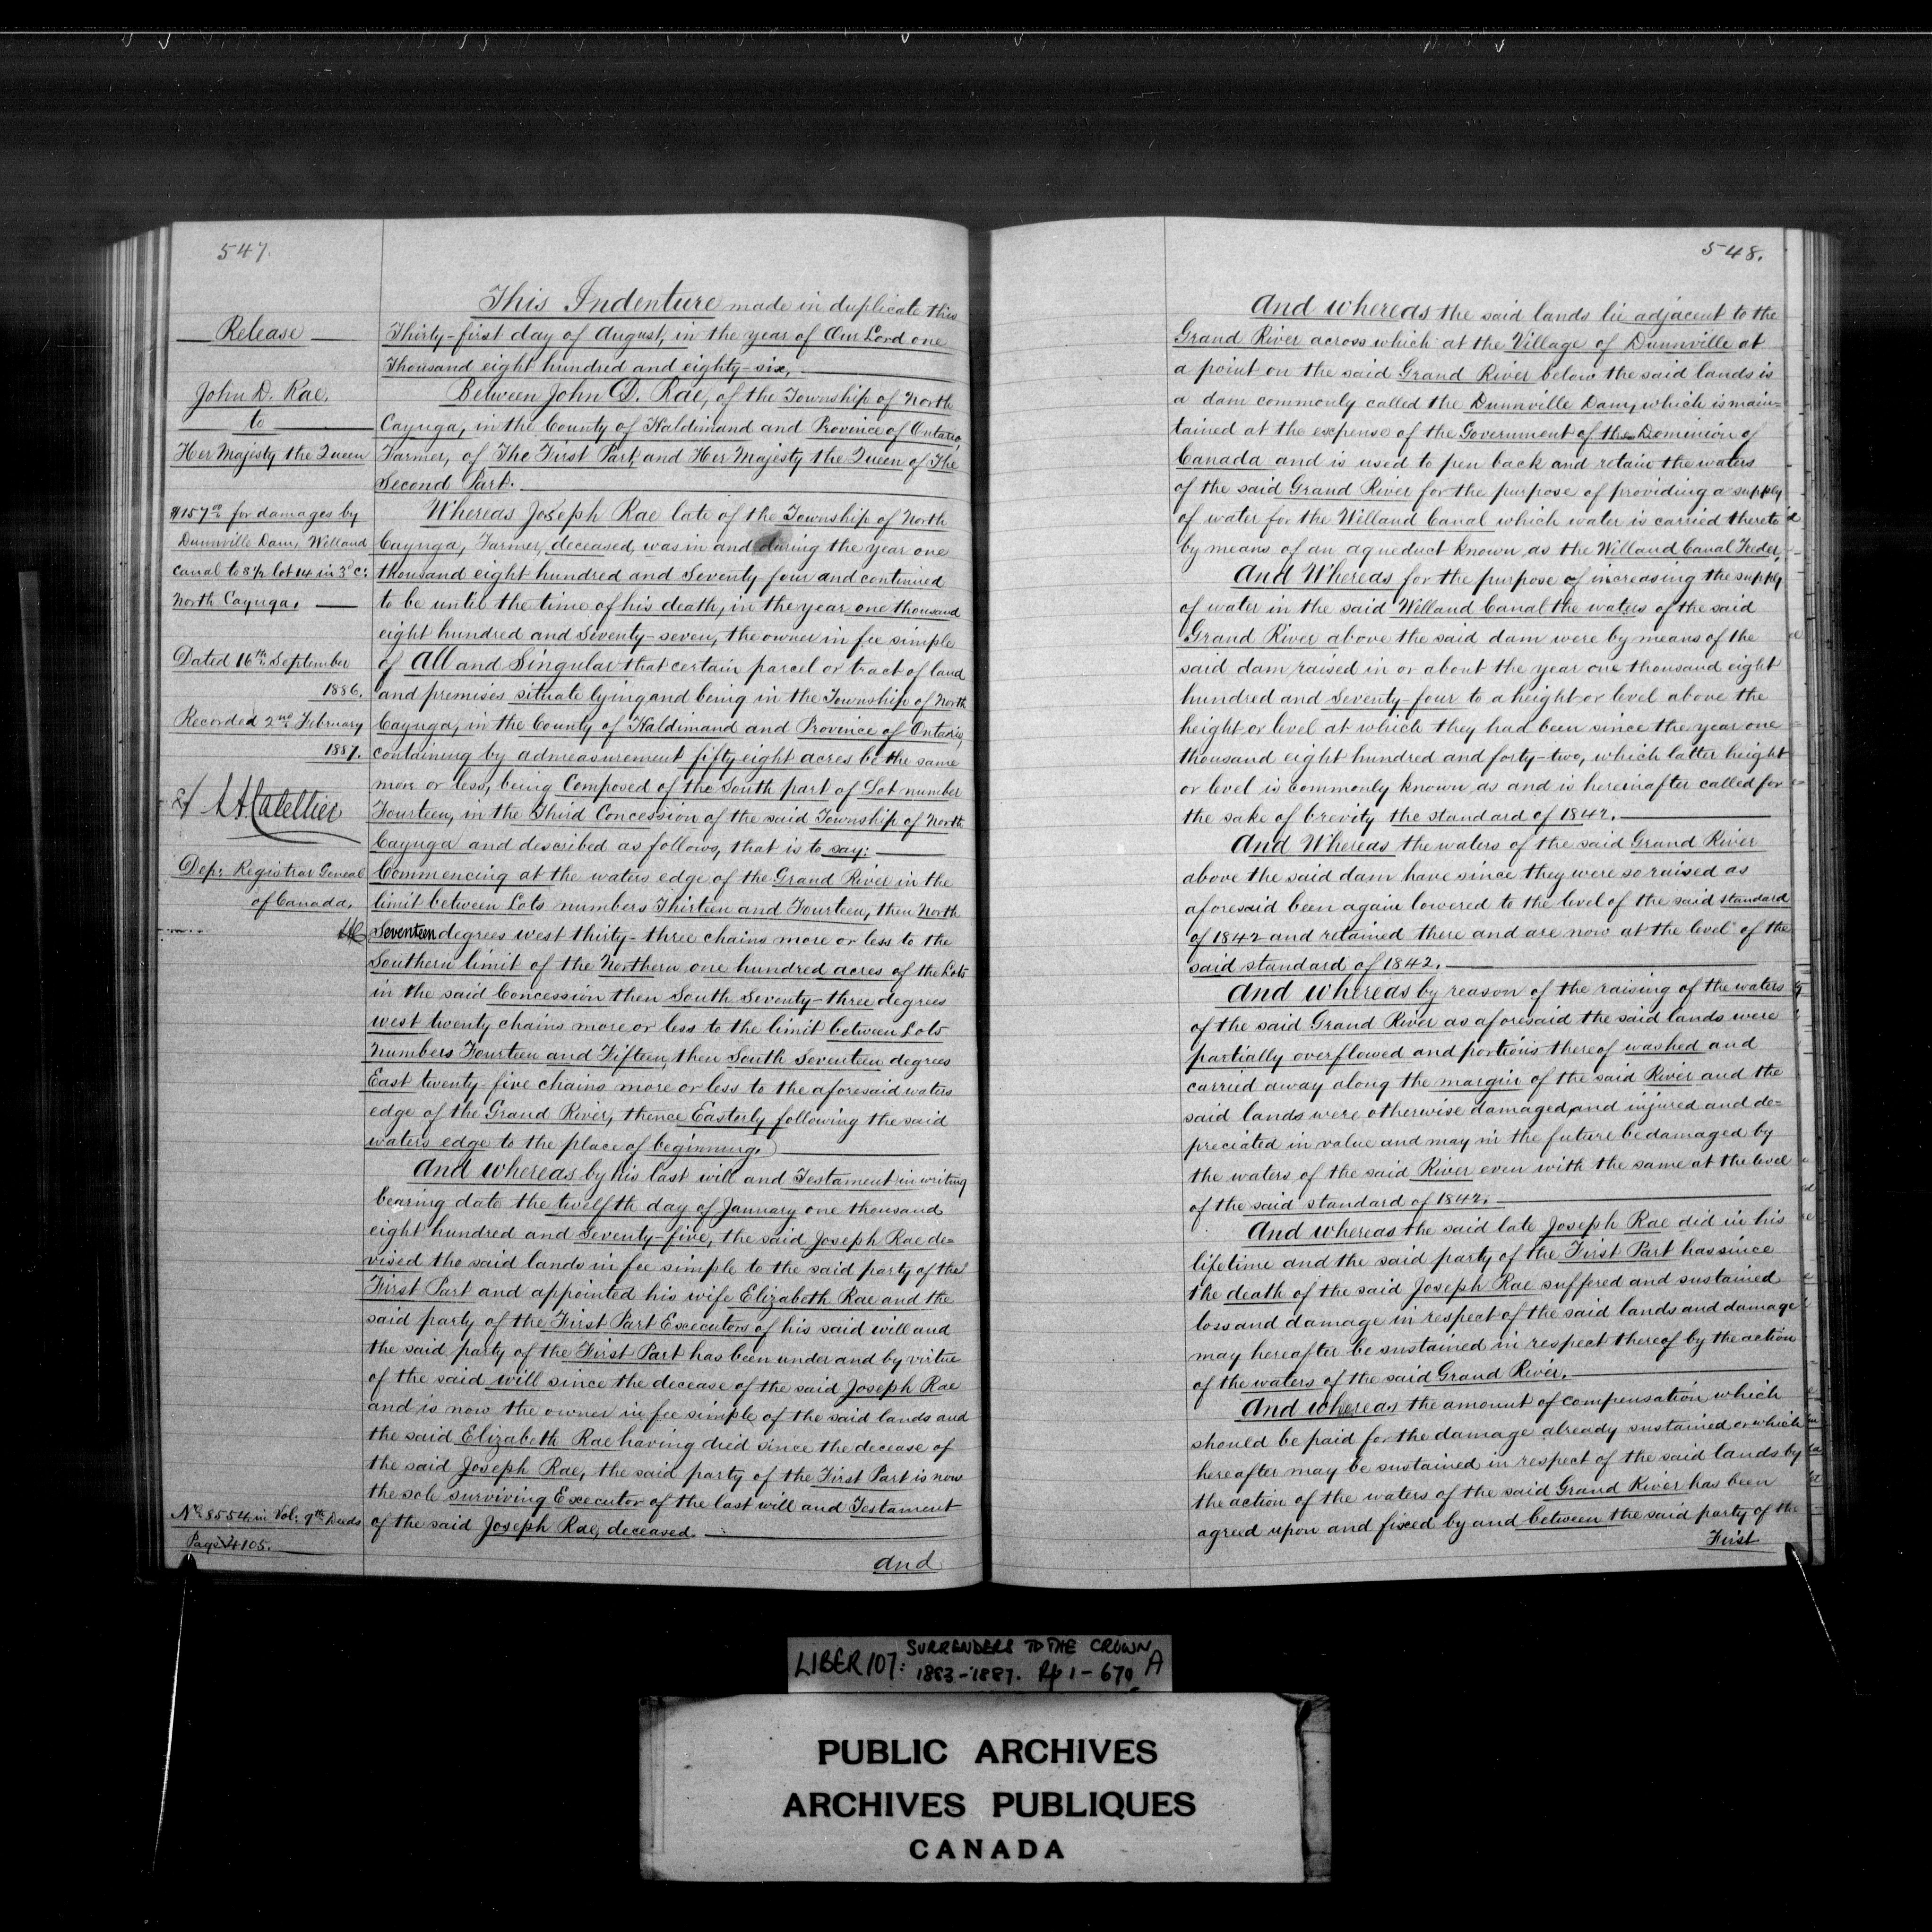 547.
Release
John D. Rae.
to
Her Majesty the Queen
$157 00 for damages by
Dunnville Dam, Welland
Canal to S ½ lot 14 in 3d C:
North Cayuga.
Dated 16th September
1886.
Recorded 2nd February
1887.
Dep: Registrar General
of Canada.
No 8554 in Vol: 9th Deeds
Page 105.
This Indenture made in duplicate this
Thirty-first day of August, in the year of Our Lord one
Thousand eight hundred and eighty-six,
Between John D. Rae, of the Township of North
Cayuga, in the County of Haldimand and Province of Ontario,
Farmer, of The First Part, and Her Majesty the Queen of The
Second Part.
Whereas Joseph Rae late of the Township of North
Cayuga, Farmer, deceased, was in and during the year one
thousand eight hundred and Seventy four and continued
to be until the time of his death, in the year one thousand
eight hundred and Seventy-seven, the owner in fee simple
of All and Singular that certain parcel or tract of land
and premises situate lying and being in the Township of North
Cayuga, in the County of Haldimand and Province of Ontario,
containing by admeasurement fifty eight acres be the same
more or less, being Composed of the South part of Lot number
Fourteen, in the Third Concession of the said Township of North
Cayuga and described as follows, that is to say:
Commencing at the waters edge of the Grand River in the
limit between Lots numbers Thirteen and Fourteen, then North
Seventeen degrees west thirty-three chains more or less to the
Southern limit of the Northern one hundred acres of the Lots
in the said Concession then South Seventy-three degrees
west twenty chains more or less to the limit between Lots
Numbers Fourteen and Fifteen, then South Seventeen degrees
East twenty-five chains more or less to the aforesaid waters
edge of the Grand River, thence Easterly following the said
waters edge to the place of beginning.
And whereas by his last will and Testament in writing
bearing date the twelfth day of January one thousand
eight hundred and Seventy-five, the said Joseph Rae de=
vised the said lands in fee simple to the said party of the
First Part and appointed his wife Elizabeth Rae and the
said party of the First Part Executors of his said will and
the said party of the First Part has been under and by virtue
of the said will since the decease of the said Joseph Rae
and is now the owner in fee simple of the said lands and
the said Elizabeth Rae having died since the decease of
the said Joseph Rae, the said party of the First Part is now
the sole surviving Executor of the last will and Testament
of the said Joseph Rae, deceased.
and
548.
And whereas the said lands lie adjacent to the
Grand River across which at the Village of Dunnville at
a point on the said Grand River below the said lands is
a dam commonly called the Dunnville Dam, which is main=
tained at the expense of the Government of the Dominion of
Canada and is used to pen back and retain the waters
of the said Grand River for the purpose of providing a supply
of water for the Welland Canal which water is carried thereto
by means of an aqueduct known as the Welland Canal Feeder,
And Whereas for the purpose of increasing the supply
of water in the said Welland Canal the waters of the said
Grand River above the said dam were by means of the
said dam raised in or about the year one thousand eight
hundred and Seventy-four to a height or level above the
height or level at which they had been since the year one
thousand eight hundred and forty-two, which latter height
or level is commonly known as and is hereinafter called for
the sake of brevity the standard of 1842.
And Whereas the waters of the said Grand River
above the said dam have since they were so raised as
aforesaid been again lowered to the level of the said standard
of 1842 and retained there and are now at the level of the
said standard of 1842.
And whereas by reason of the raising of the waters
of the said Grand River as aforesaid the said lands were
partially overflowed and portions thereof washed and
carried away along the margin of the said River and the
said lands were otherwise damaged, and injured and de=
preciated in value and may in the future be damaged by
the waters of the said River even with the same at the level
of the said standard of 1842.
And whereas the said late Joseph Rae did in his
lifetime and the said party of the First Part has since
the death of the said Joseph Rae suffered and sustained
loss and damage in respect of the said lands and damage
may hereafter be sustained in respect thereof by the action
of the waters of the said Grand River.
And whereas the amount of compensation which
should be paid for the damage already sustained or which
hereafter may be sustained in respect of the said lands by
the action of the waters of the said Grand River has been
agreed upon and fixed by and between the said party of the
First
LIBER 107: SURRENDERS TO THE CROWN A
1883-1887. Pp 1-670
PUBLIC ARCHIVES
ARCHIVES PUBLIQUES
CANADA